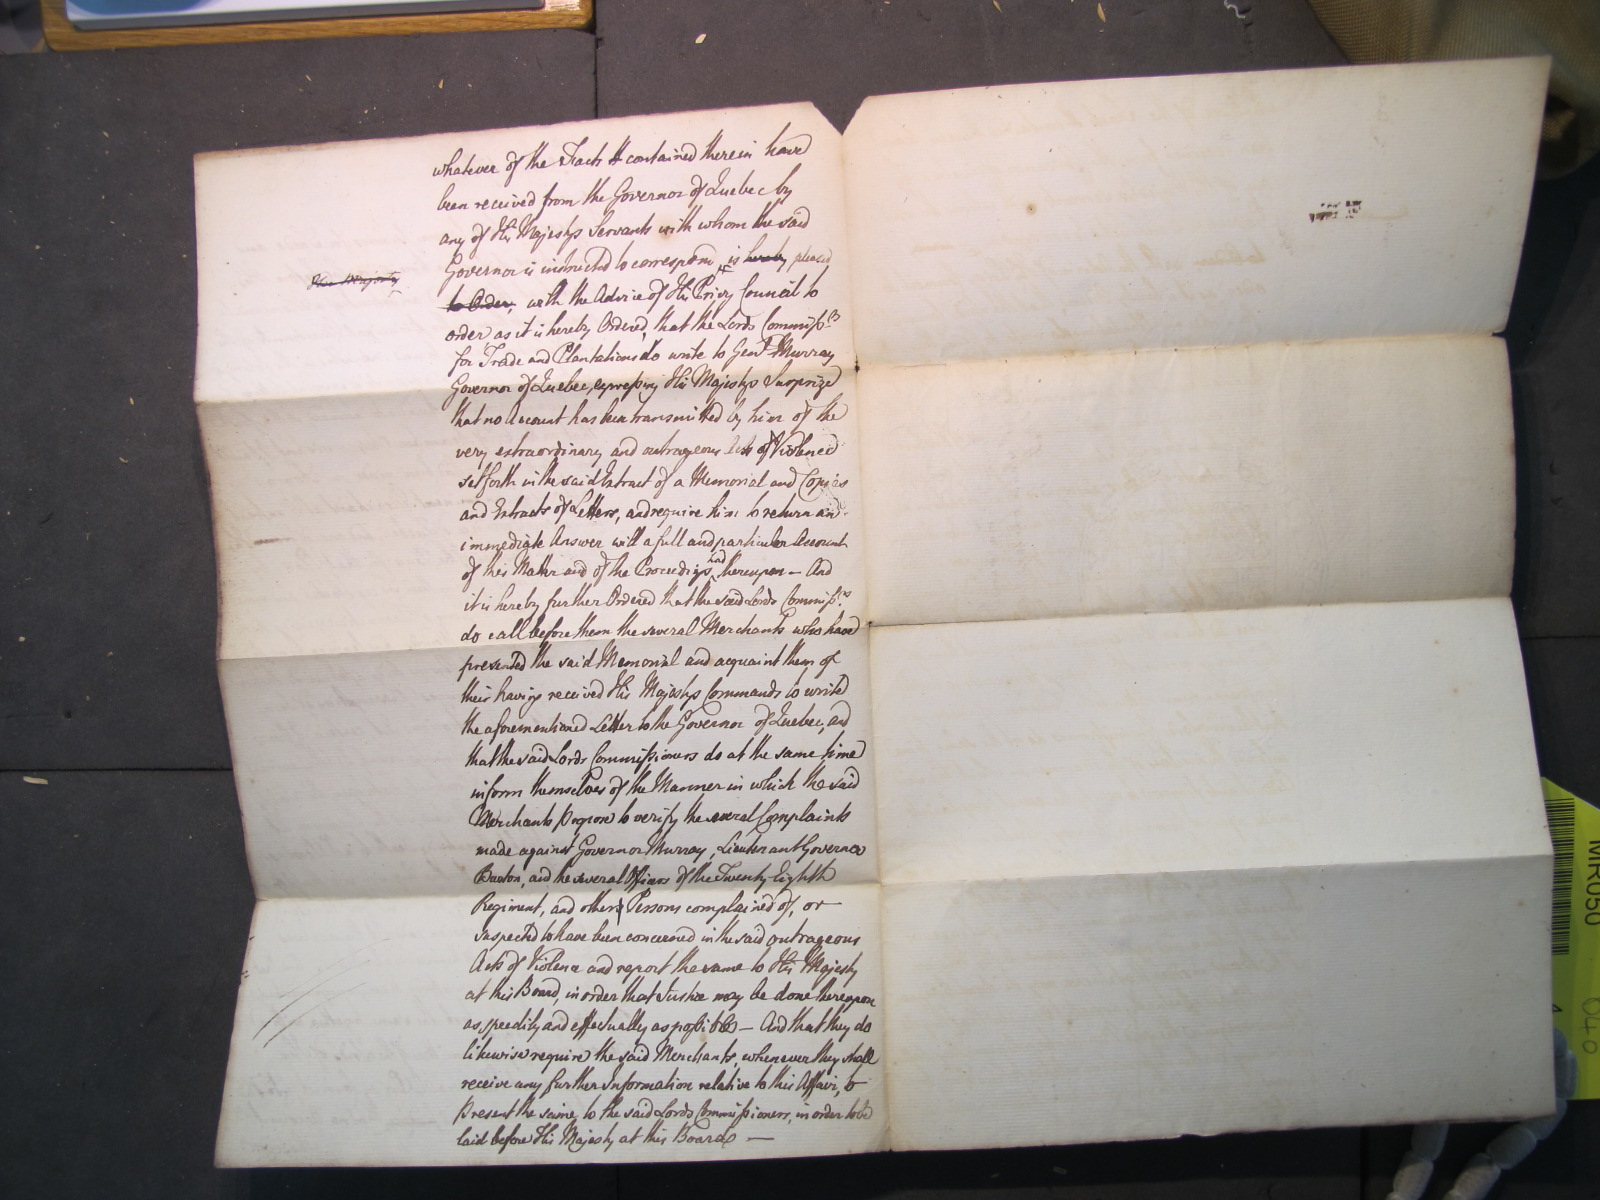 whatever of the Facts contained therein have
been received from the Governor of Quebec by
any of His Majestys Servants with whom the said
Governor is instructed to correspond, is hereby pleased
His Majesty
to Order, with the Advice of His Privy Council to
order as it is hereby Ordered, that the Lords Commiss.rs
for Trade and Plantations do write to Gen.l Murray
Governor of Quebec, expressing His Majestys Surprize
that no Account has been transmitted by him of the
very extraordinary and outrageous Acts of Violence
set forth in the said Extract of a Memorial and Copies
and Extracts of Letters, and require him to return an
immediate Answer with a full and particular Account
of this Matter and of the Proceedings had thereupon — And
it is hereby further Ordered that the said Lords Commiss.rs
do call before them the several Merchants who have
presented the said Memorial and acquaint them of
their having received His Majestys Commands to write
the aforementioned Letter to the Governor of Quebec, and
that the said Lords Commissioners do at the same time
inform themselves of the Manner in which the said
Merchants propose to verify the several Complaints
made against Governor Murray, Lieutenant Governor
Burton, and the several Officers of the Twenty Eighth
Regiment, and other Persons complained of, or
suspected to have been concerned in the said outrageous
Acts of Violence and report the same to His Majesty
at this Board, in order that Justice may be done thereupon
as speedily and effectually as possible — And that they do
likewise require the said Merchants, whenever they shall
receive any further Information relative to this Affair, to
present the same to the said Lords Commissioners, in order to be
laid before His Majesty at this Board —
MR050
040